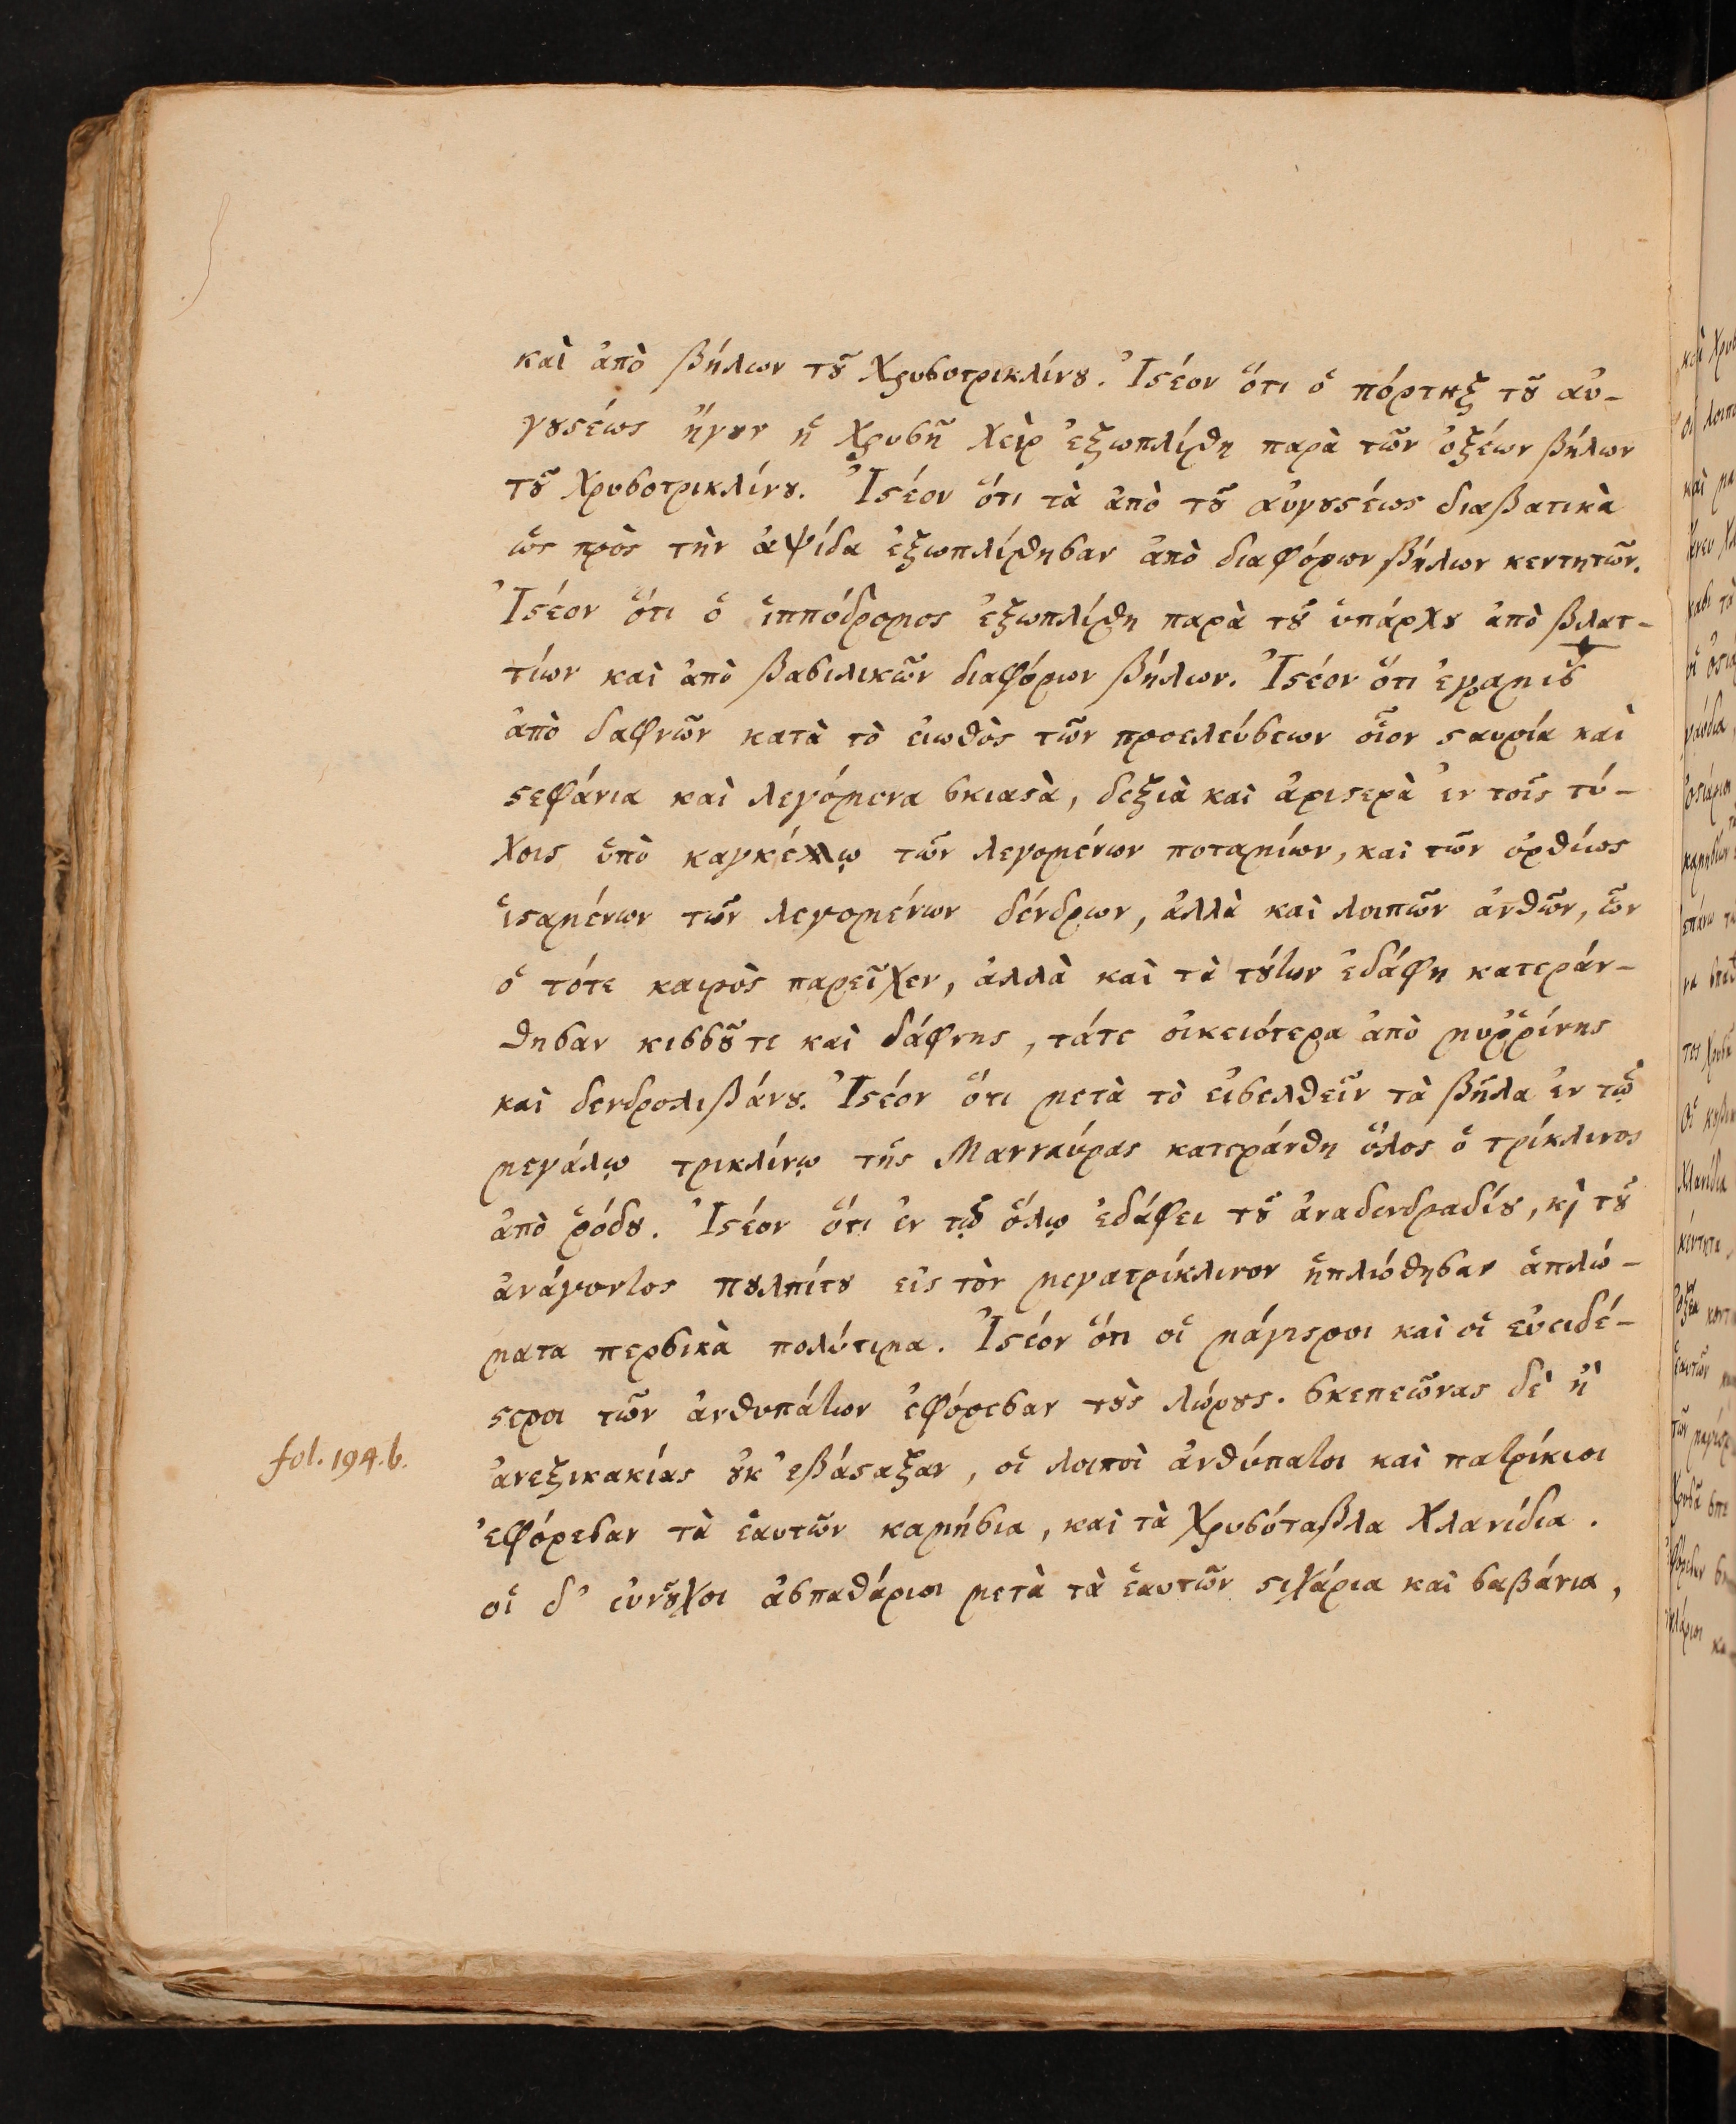 καὶ ἀπὸ βήλων τȣ͂ Χρυσοτρικλίνȣ. Ἰϛέον ὅτι ὁ πόρτηξ τȣ͂ αὐ-
γȣϛέως ἤγȣν ἡ Χρυσῆ Χεὶρ ἐξωπλίσθη παρὰ τῶν ὀξέων βήλων
τȣ͂ Χρυσοτρικλίνȣ. Ἰϛέον ὅτι τὰ ἀπὸ τȣ͂ αὐγȣϛέως διαβατικὰ
ὡς πρὸς τὴν ἁψίδα ἐξωπλίσθησαν ἀπὸ διαφόρων βήλων κεντητῶν.
Ἰϛέον ὅτι ὁ ἱππόδρομος ἐξωπλίσθη παρὰ τȣ͂ ὑπάρχȣ ἀπὸ βλατ-
τίων καὶ ἀπὸ βασιλικῶν διαφόρων βήλων. Ἰϛέον ὅτι
ἀπὸ δαφνῶν κατὰ τὸ εἰωθὸς τῶν προελεύσεων οἷον ϛαυρία καὶ
ϛεφάνια καὶ λεγόμενα σκιαϛὰ, δεξιὰ καὶ ἀριϛερὰ ἐν τοῖς τύ-
χοις ὑπὸ καγκέλλῳ τῶν λεγομένων ποταμίων, καὶ τῶν ὀρθίως
ἱϛαμένων τῶν λεγομένων δένδρων, ἀλλὰ καὶ λοιπῶν ἀνθῶν, ὧν
ὁ τότε καιρὸς παρεῖχεν, ἀλλὰ καὶ τὰ τȣ́των ἐδάφη κατεράν-
θησαν κισσȣ͂ τε καὶ δάφνης, τάτε οἰκειότερα ἀπὸ μυῤῥίνης
καὶ δενδρολιβάνȣ. Ἰϛέον ὅτι μετὰ τὸ εἰσελθεῖν τὰ βῆλα ἐν τῷ
μεγάλῳ τρικλίνῳ τῆς Μανναύρας κατεράνθη ὅλος ὁ τρίκλινος
ἀπὸ ῥόδȣ. Ἰϛέον ὅτι ἐν τῷ ὅλῳ ἐδάφει τȣ͂ ἀναδενδραδίȣ, κ̀ τȣ͂
ἀνάγοντος πȣλπίτȣ εἰς τὸν μεγατρίκλινον ἡπλώθησαν ἁπλώ-
ματα περσικὰ πολύτιμα. Ἰϛέον ὅτι οἱ μάγιϛροι καὶ οἱ εὐειδέ-
ϛεροι τῶν ἀνθυπάτων ἐφόρεσαν τȣ̀ς λώρȣς. σκεπεῶνας δὲ ἢ
ἀνεξικακίας ȣ̓κ ἐβάϛαξαν, οἱ λοιποὶ ἀνθύπατοι καὶ πατρίκιοι
ἐφόρεσαν τὰ ἑαυτῶν καμήσια, καὶ τὰ Χρυσόταβλα Χλανίδια.
οἱ δ' εὐνȣ͂χοι ἀσπαθάριοι μετὰ τὰ ἑαυτῶν ϛιχάρια καὶ σαβάνια,
fol. 194.b.